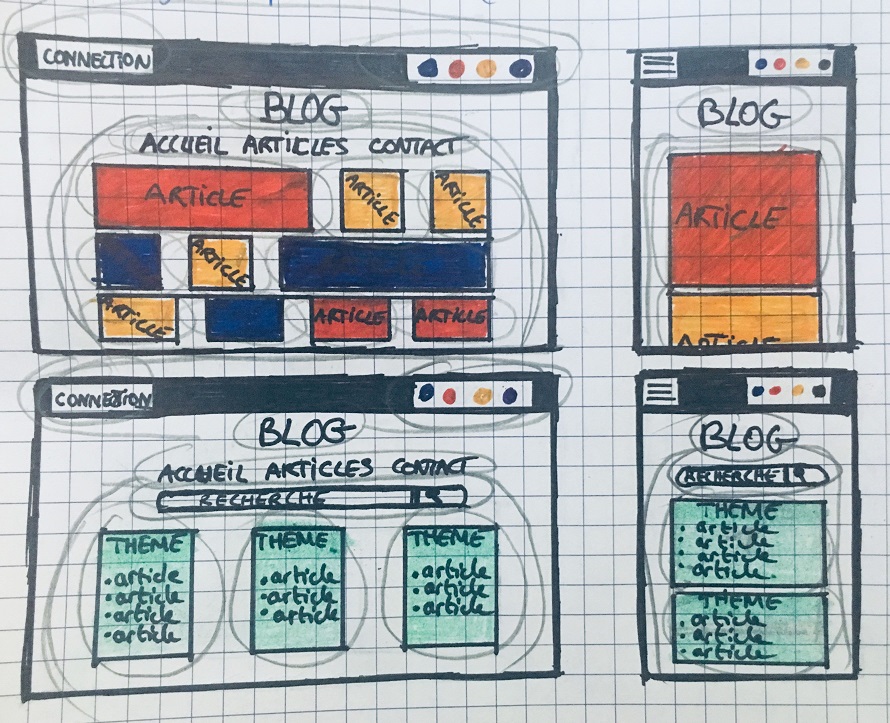 CONNECTION
BLOG
ACCUEIL ARTICLES CONTACT
ARTICLE ARTICLE ARTICLE
ARTICLE
ARTICLE ARTICLE ARTICLE
BLOG
ARTICLE
ARTICLE
CONNECTION
BLOG
ACCUEIL ARTICLES CONTACT
RECHERCHE
THEME
• article
• article
• article
• article
THEME
• article
• article
• article
THEME
• article
• article
• article
BLOG
RECHERCHE
THEME
• article
• article
• article
• article
THEME
• article
• article
• article